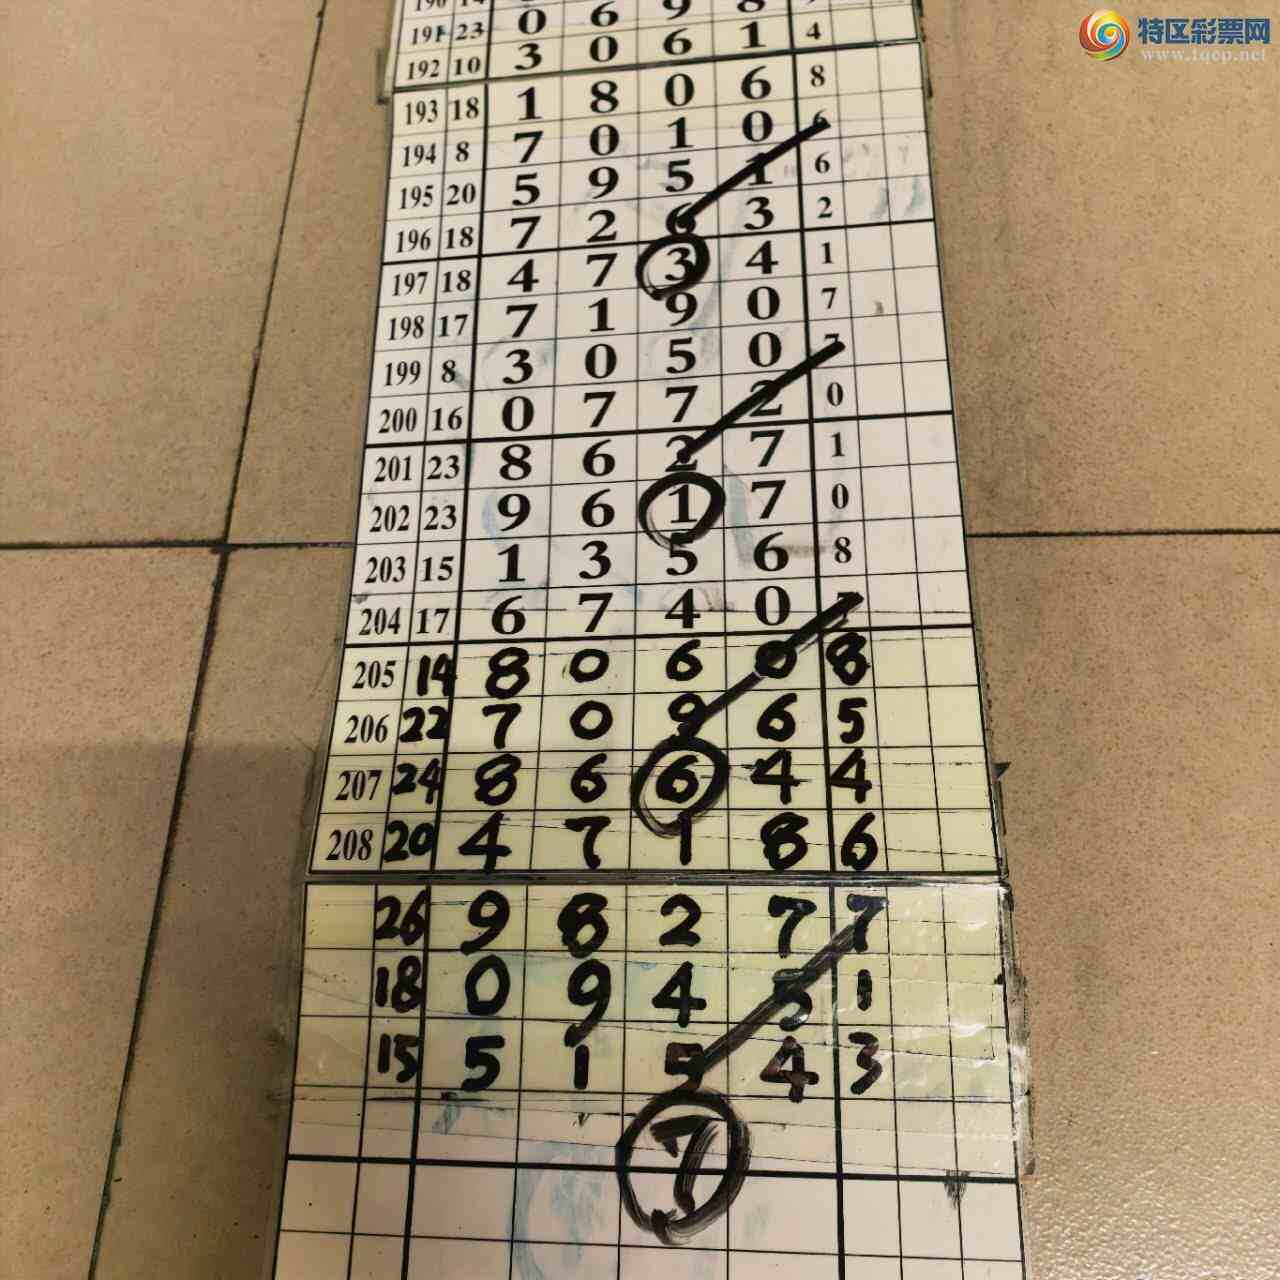 特区彩票网
www.tqcp.net
190 14
191 23 0 6 9 8
192 10 3 0 6 1 4
193 18 1 8 0 6 8
194 8 7 0 1 0 6
195 20 5 9 5 1 6
196 18 7 2 6 3 2
197 18 4 7 3 4 1
198 17 7 1 9 0 7
199 8 3 0 5 0 7
200 16 0 7 7 2 0
201 23 8 6 2 7 1
202 23 9 6 1 7 0
203 15 1 3 5 6 8
204 17 6 7 4 0 7
205 14 8 0 6 0 8
206 22 7 0 9 6 5
207 24 8 6 6 4 4
208 20 4 7 1 8 6
26 9 8 2 7 7
18 0 9 4 5 1
15 5 1 5 4 3
7